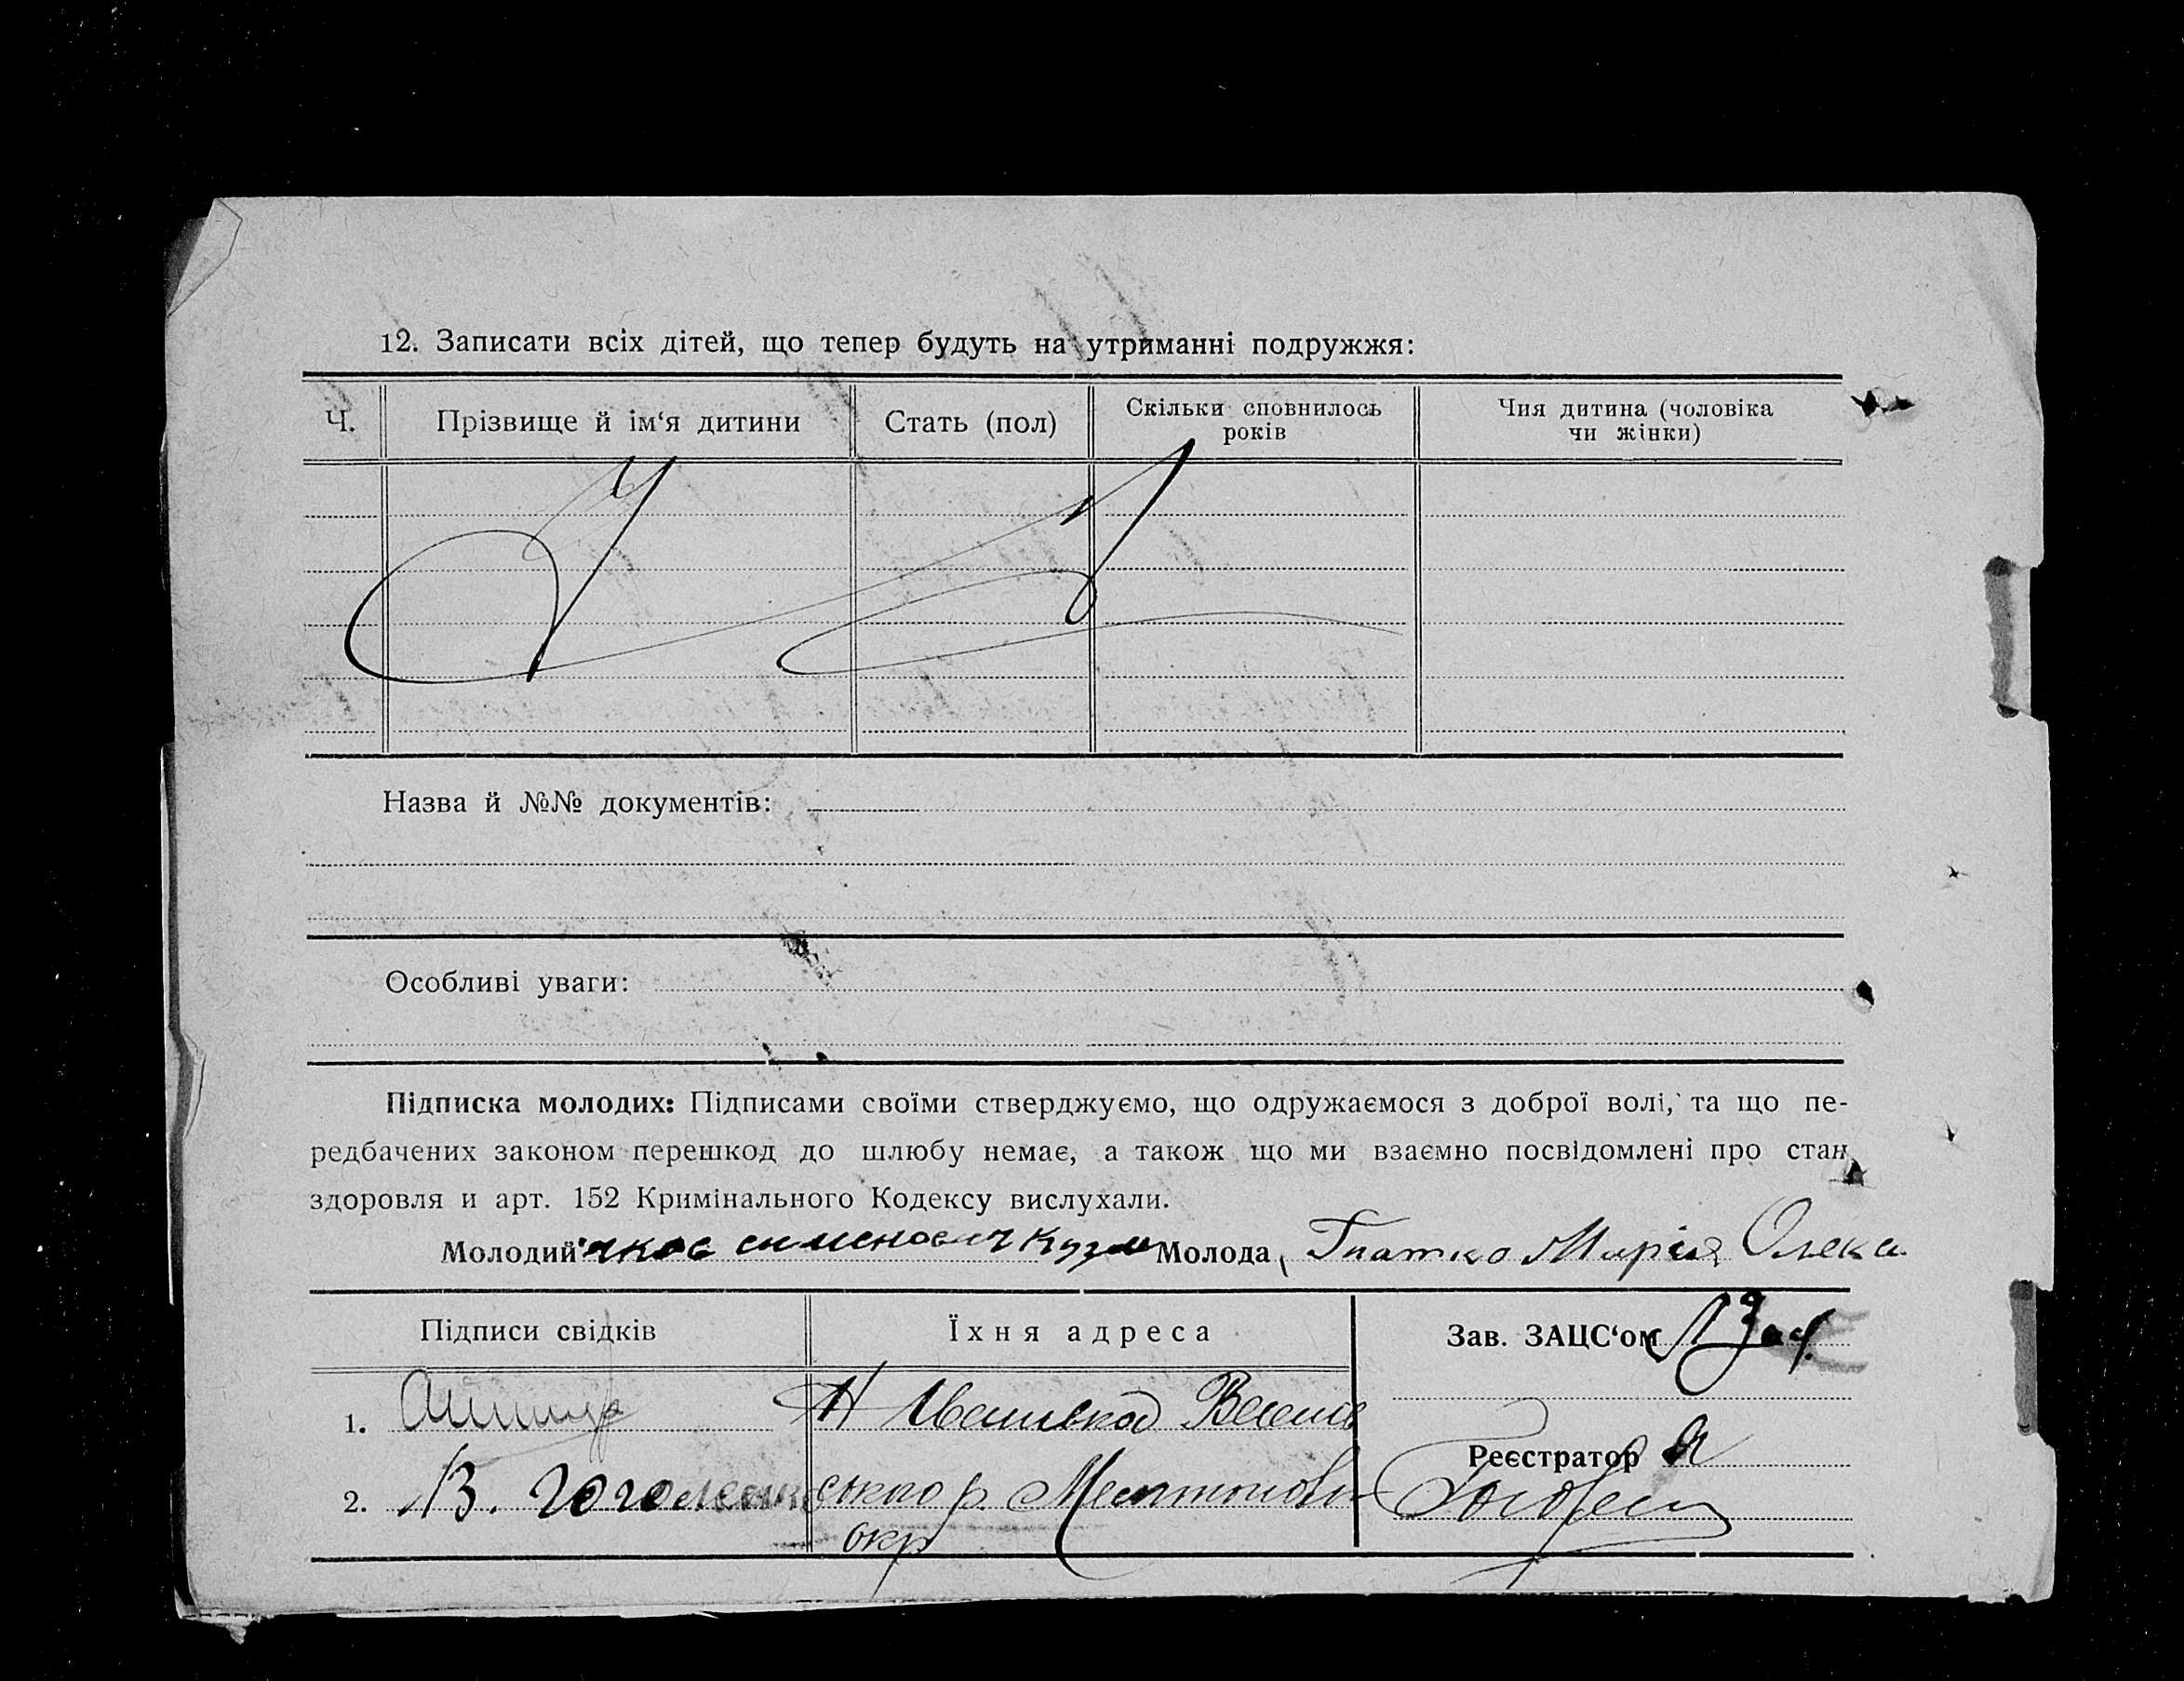 12. Записати всіх дітей, що тепер будуть на утриманні подружжя:
Ч. Прізвище й ім‘я дитини Стать (пол) Скільки сповнилось років Чия дитина (чоловіка чи жінки)
Назва й №№ документів:
Особливі уваги:
Підписка молодих: Підписами своїми стверджуємо, що одружаємося з доброї волі, та що пе-
редбачених законом перешкод до шлюбу немає, а також що ми взаємно посвідомлені про стан
здоровля и арт. 152 Кримінального Кодексу вислухали.
Молодий сименович Молода Гнатко Марія Олекса
Підписи свідків Їхня адреса Зав. ЗАЦС‘ом
1.
Реєстратор
2. В. р.
окр